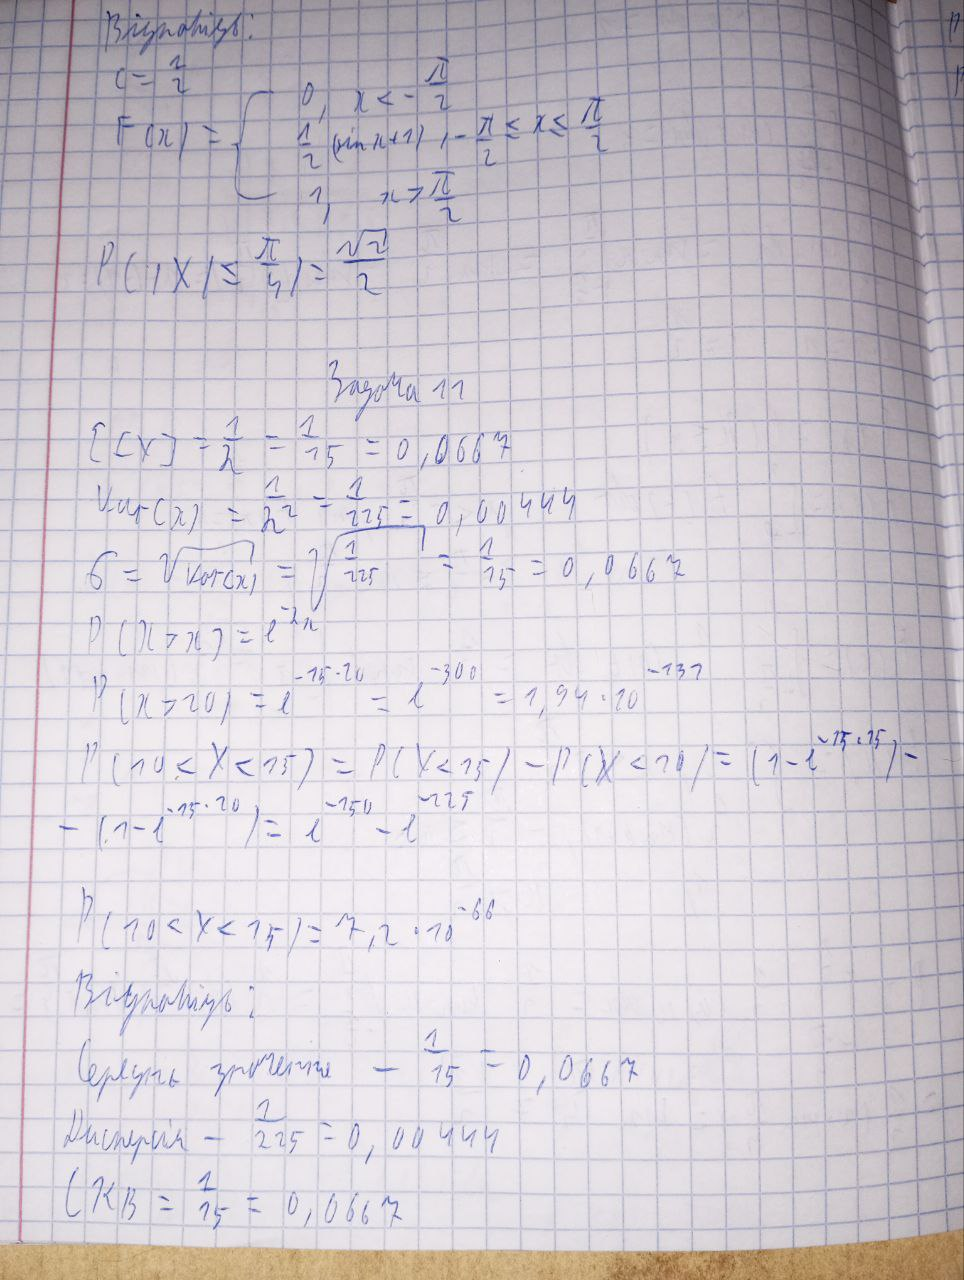 Відповідь:
c = 1/2
F(x) = { 0, x < -π/2
1/2 (sin x + 1), -π/2 ≤ x ≤ π/2
1, x > π/2
P(|X| ≤ π/4) = √2/2
Задача 11
E[X] = 1/λ = 1/15 = 0,0667
Var(x) = 1/λ² = 1/225 = 0,00444
σ = √Var(x) = √(1/225) = 1/15 = 0,0667
P(X > x) = e^(-λx)
P(x > 20) = e^(-15·20) = e^(-300) = 1,94·10^(-131)
P(10 < X < 15) = P(X < 15) - P(X < 10) = (1 - e^(-15·15)) -
- (1 - e^(-15·10)) = e^(-150) - e^(-225)
P(10 < X < 15) = 7,2·10^(-66)
Відповідь:
Середнь значення - 1/15 = 0,0667
Дисперсія - 1/225 = 0,00444
СКВ = 1/15 = 0,0667